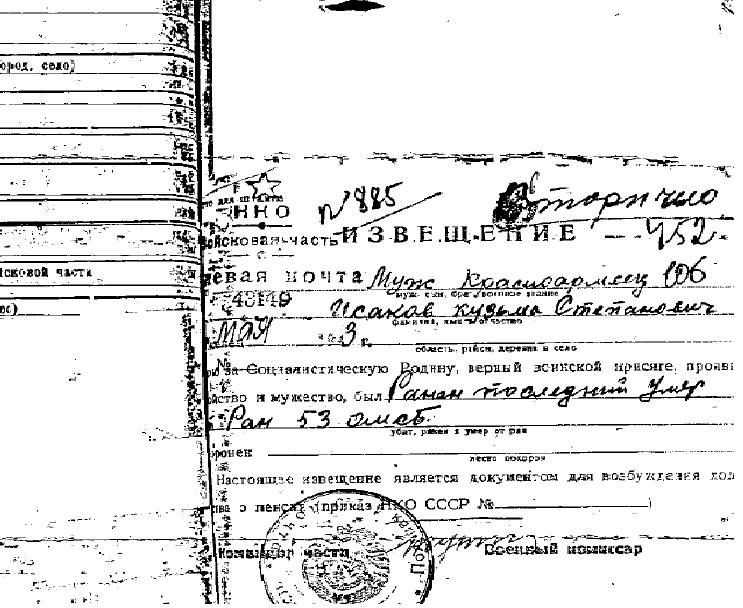 ород, село)
йсковой части
во)
НКО
N 885
Вторично
Войсковая часть ИЗВЕЩЕНИЕ 452.
евая почта Муж Красноармеец 106
муж, сын, брат, военное звание
43149 Исаков Кузьма Степанович
фамилия, имя и отчество
МАЯ 1943 г.
область, район, деревня и село
№
за Социалистическую Родину, верный воинской присяге, прояв
йство и мужество, был Ранен последний Умер
Ран 53 омсб.
убит, ранен и умер от ран
оронен
место похорон
Настоящее извещение является документом для возбуждения ход
ва о пенсии (приказ НКО СССР №
Командир части Военный комиссар